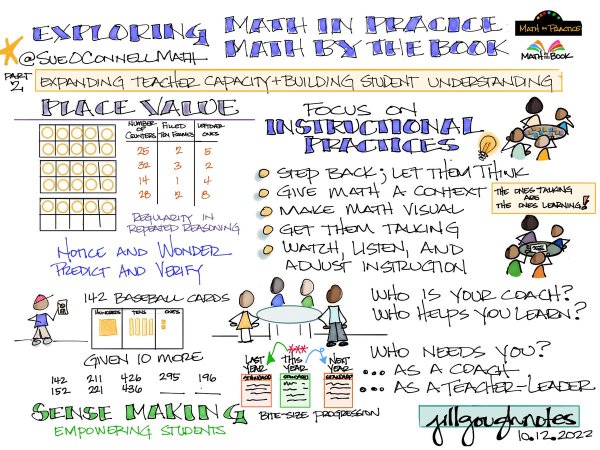 EXPLORING MATH IN PRACICE
MATH BY THE BOOK
@SUEOCONNELLMATH
MATH IN PRACTICE
MATH BY THE BOOK
PART 2
EXPANDING TEACHER CAPACITY + BUILDING STUDENT UNDERSTANDING
PLACE VALUE
NUMBER OF COUNTERS FILLED TEN FRAMES LEFTOVER ONES
25 2 5
32 3 2
14 1 4
28 2 8
REGULARITY IN
REPEATED REASONING
NOTICE AND WONDER
PREDICT AND VERIFY
142 BASEBALL CARDS
HUNDREDS TENS ONES
GIVEN 10 MORE
142 211 426 295 196
152 221 436
SENSE MAKING
EMPOWERING STUDENTS
FOCUS ON
INSTRUCTIONAL
PRACTICES
STEP BACK; LET THEM THINK
GIVE MATH A CONTEXT
MAKE MATH VISUAL
GET THEM TALKING
WATCH, LISTEN, AND
ADJUST INSTRUCTION
THE ONES TALKING
ARE
THE ONES LEARNING!
LAST YEAR THIS YEAR NEXT YEAR
STANDARD STANDARD STANDARD
BITE-SIZE PROGRESSION
WHO IS YOUR COACH?
WHO HELPS YOU LEARN?
WHO NEEDS YOU?
... AS A COACH
... AS A TEACHER-LEADER
jillgoughnotes
10.12.2022